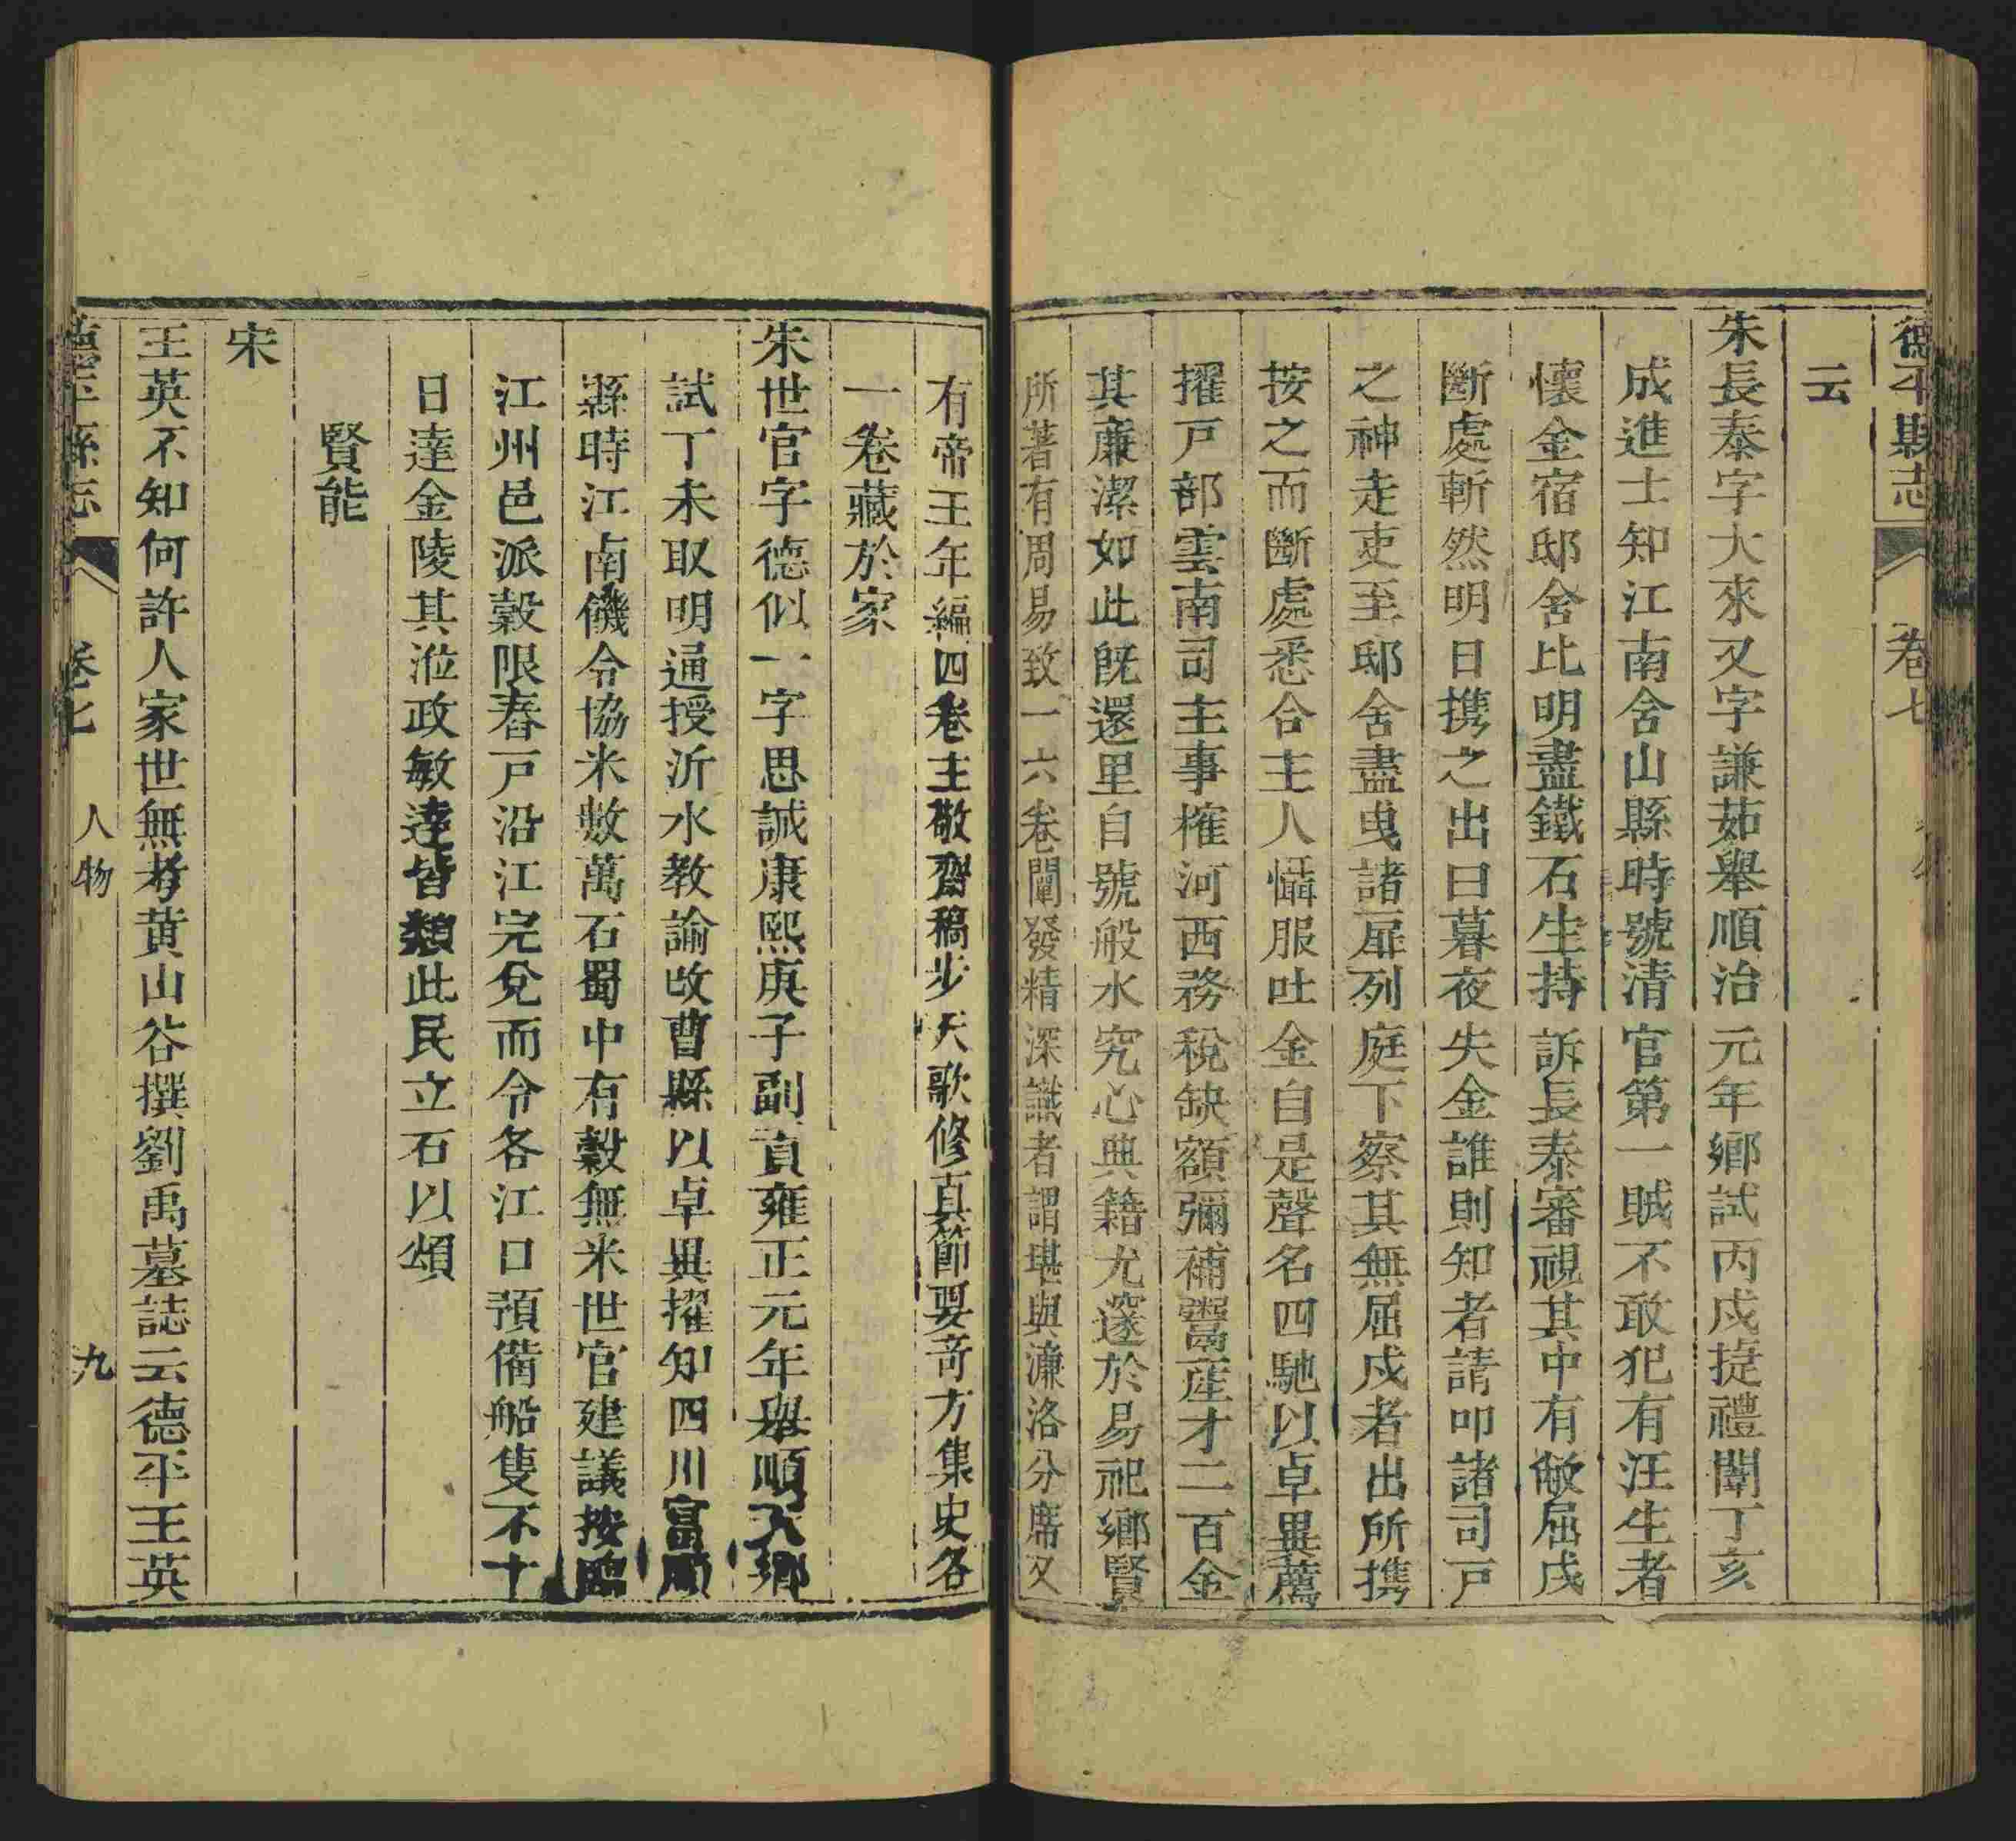 德平縣志 卷七
云
朱長泰字大來又字謙茹舉順治元年鄉試丙戍捷禮闈丁亥
成進士知江南含山縣時號清官第一賊不敢犯有汪生者
懷金宿邸舍比明盡鐵石生持訴長泰審視其中有敝屈戍
斷處斬然明日携之出曰暮夜失金誰則知者請叩諸司戸
之神走吏至邸舍盡曳諸扉列庭下察其無屈戍者出所携
按之而斷處悉合主人懾服吐金自是聲名四馳以卓異薦
擢戸部雲南司主事榷河西務稅缺額彌補鬻產才二百金
其亷潔如此旣還里自號般水究心典籍尤邃於易祀鄉賢
所著有周易致一六卷闡發精深識者謂堪與濂洛分席又
有帝王年編四卷主敬齋稿步天歌修真節要竒方集史各
一卷藏於家
朱世官字德似一字思誠康熙庚子副貢雍正元年舉順天鄉
試丁未取明通授沂水教諭改曹縣以卓異擢知四川富順
縣時江南饑令協米數萬石蜀中有穀無米世官建議按臨
江州邑派穀限舂戸沿江完兌而令各江口預備船隻不十
日達金陵其涖政敏達皆類此民立石以頌
賢能
宋
王英不知何許人家世無考黄山谷撰劉禹墓誌云德平王英
德平縣志 卷七 人物 九